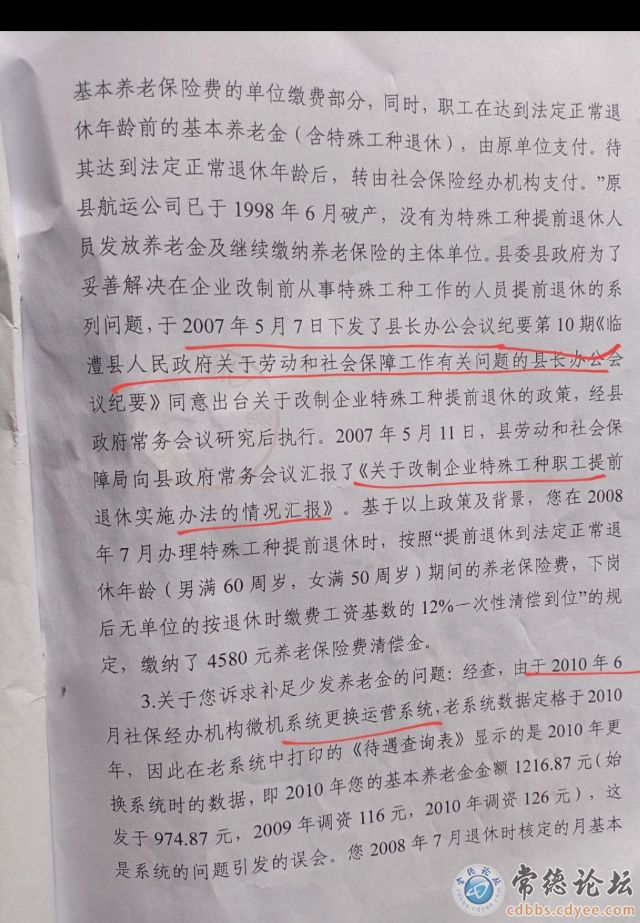 基本养老保险费的单位缴费部分，同时，职工在达到法定正常退
休年龄前的基本养老金（含特殊工种退休），由原单位支付。待
其达到法定正常退休年龄后，转由社会保险经办机构支付。”原
县航运公司已于 1998 年 6 月破产，没有为特殊工种提前退休人
员发放养老金及继续缴纳养老保险的主体单位。县委县政府为了
妥善解决在企业改制前从事特殊工种工作的人员提前退休的系
列问题，于 2007 年 5 月 7 日下发了县长办公会议纪要第 10 期《临
澧县人民政府关于劳动和社会保障工作有关问题的县长办公会
议纪要》同意出台关于改制企业特殊工种提前退休的政策，经县
政府常务会议研究后执行。2007 年 5 月 11 日，县劳动和社会保
障局向县政府常务会议汇报了《关于改制企业特殊工种职工提前
退休实施办法的情况汇报》。基于以上政策及背景，您在 2008
年 7 月办理特殊工种提前退休时，按照“提前退休到法定正常退
休年龄（男满 60 周岁，女满 50 周岁）期间的养老保险费，下岗
后无单位的按退休时缴费工资基数的 12%一次性清偿到位”的规
定，缴纳了 4580 元养老保险费清偿金。
3.关于您诉求补足少发养老金的问题：经查，由于 2010 年 6
月社保经办机构微机系统更换运营系统，老系统数据定格于 2010
年，因此在老系统中打印的《待遇查询表》显示的是 2010 年更
换系统时的数据，即 2010 年您的基本养老金金额 1216.87 元(始
发于 974.87 元，2009 年调资 116 元，2010 年调资 126 元），这
是系统的问题引发的误会。您 2008 年 7 月退休时核定的月基本
常德论坛
cdbbs.cdyee.com